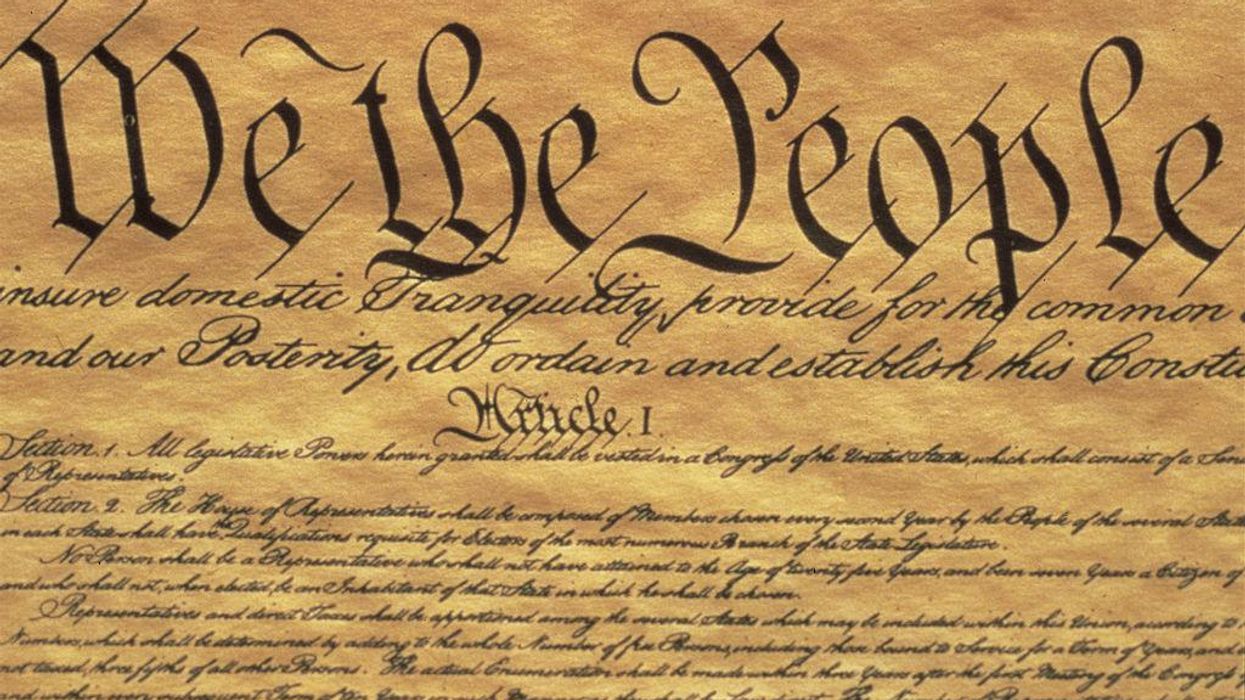 We the People
insure domestic Tranquility, provide for the common
and our Posterity, do ordain and establish this Constitu
Article. I.
Section. 1. All legislative Powers herein granted shall be vested in a Congress of the United States, which shall consist of a Sena
of Representatives.
Section. 2. The House of Representatives shall be composed of Members chosen every second Year by the People of the several Stat
in each State shall have the Qualifications requisite for Electors of the most numerous Branch of the State Legislature.
No Person shall be a Representative who shall not have attained to the Age of twenty five Years, and been seven Years a Citizen of
and who shall not, when elected, be an Inhabitant of that State in which he shall be chosen.
Representatives and direct Taxes shall be apportioned among the several States which may be included within this Union, according to
Numbers, which shall be determined by adding to the whole Number of free Persons, including those bound to Service for a Term of Years, and
not taxed, three fifths of all other Persons. The actual Enumeration shall be made within three Years after the first Meeting of the Congress
and within every subsequent Term of ten Years